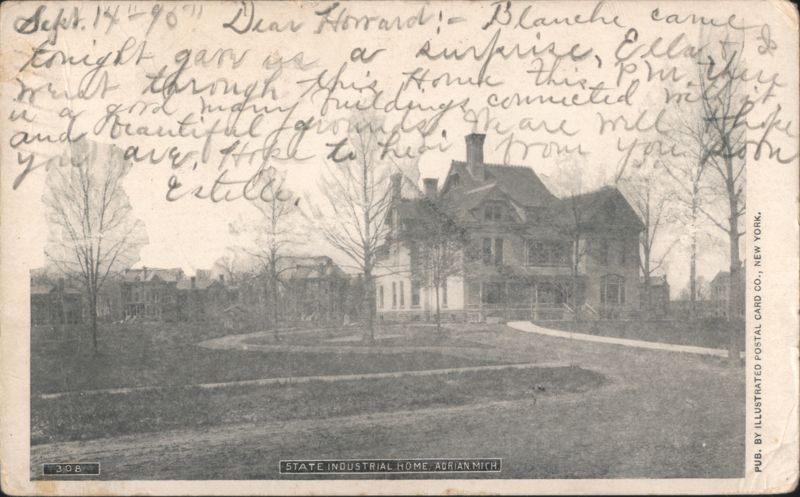 Sept. 14" - 90" Dear Howard! - Blanche came
tonight gave us a surprise, Ella & I
went through this Home this P.M. there
is a good many buildings connected with it,
and beautiful grounds. We are well & hope
you are, Hope to hear from you soon
Estelle.
PUB. BY ILLUSTRATED POSTAL CARD CO., NEW YORK.
308
STATE INDUSTRIAL HOME, ADRIAN MICH.